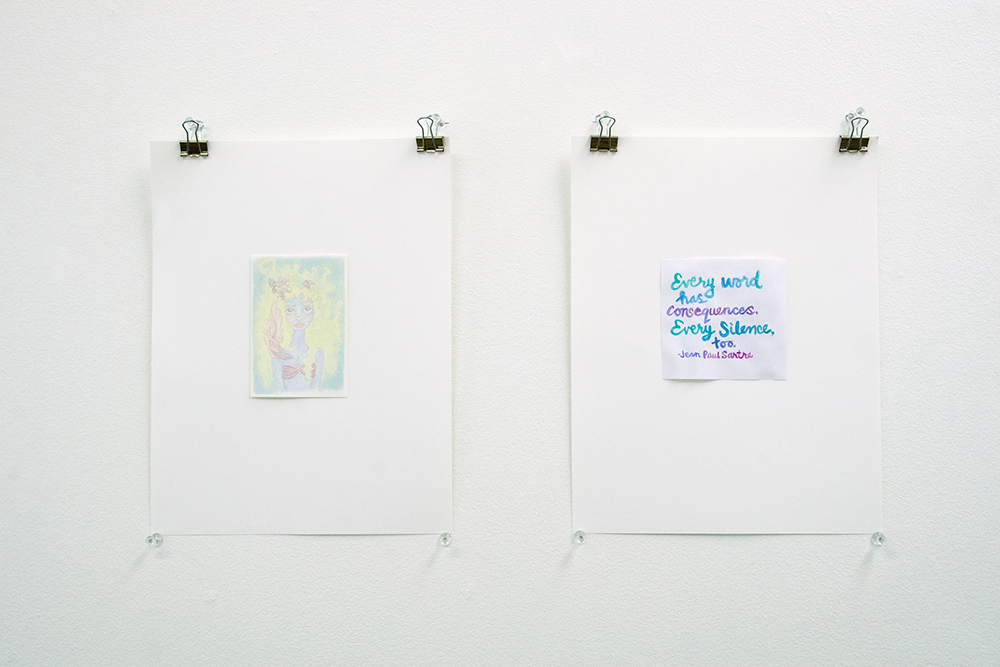 Every word
has
consequences.
Every Silence,
too.
-Jean Paul Sartre